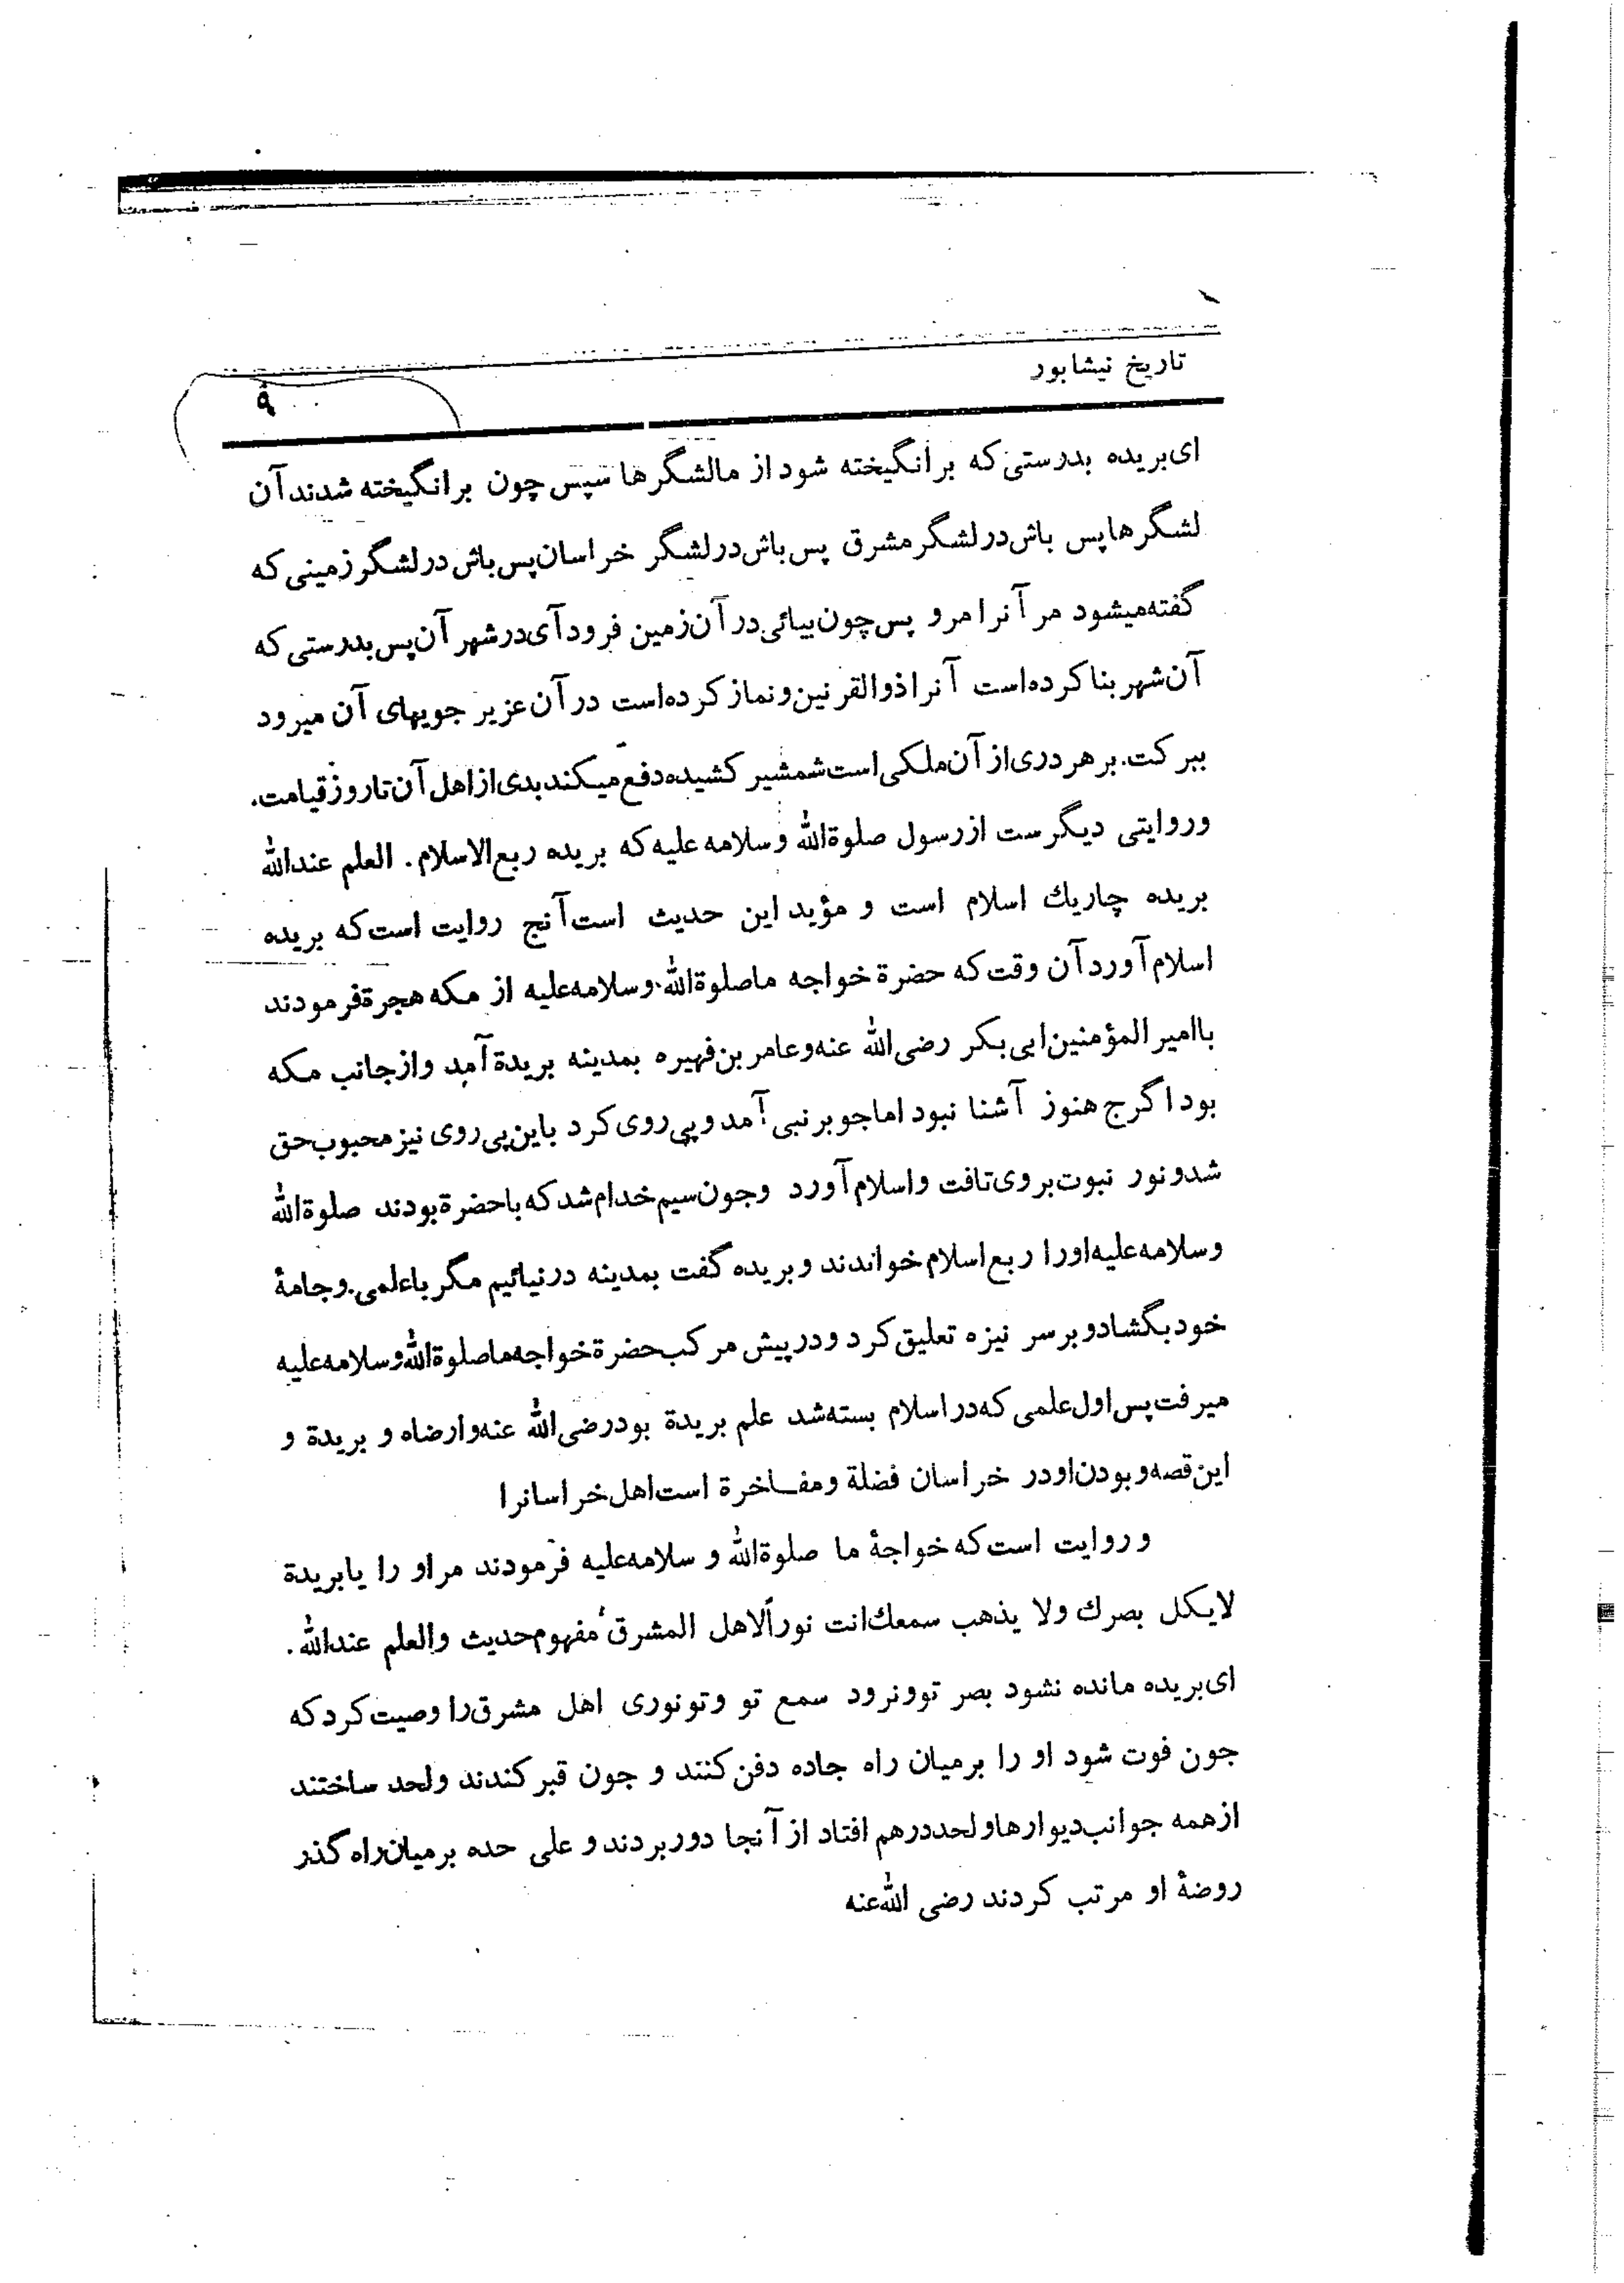 تاریخ نیشابور
۹
ای بریده بدرستی که برانگیخته شود از ما لشگرها سپس چون برانگیخته شدند آن
لشگرها پس باش در لشگر مشرق پس باش در لشگر خراسان پس باش در لشگر زمینی که
گفته میشود مر آنرا مرو پس چون بیائی در آن زمین فرود آی در شهر آن پس بدرستی که
آن شهر بنا کرده است آنرا ذوالقرنین و نماز کرده است در آن عزیر جویهای آن میرود
ببرکت. بر هر دری از آن ملکی است شمشیر کشیده دفع میکند بدی از اهل آن تا روز قیامت.
وروایتی دیگرست از رسول صلوةالله وسلامه علیه که بریده ربع الاسلام. العلم عندالله
بریده چاریك اسلام است و مؤید این حدیث است آنج روایت است که بریده
اسلام آورد آن وقت که حضرة خواجه ما صلوةالله وسلامه علیه از مکه هجرة فرمودند
با امیر المؤمنین ابی بکر رضی الله عنه و عامر بن فهیره بمدینه بریدة آمد و از جانب مکه
بود اگرج هنوز آشنا نبود اما جو بر نبی آمد و پی روی کرد باین پی روی نیز محبوب حق
شد و نور نبوت بر وی تافت و اسلام آورد وجون سیم خدام شد که با حضرة بودند صلوةالله
وسلامه علیه اورا ربع اسلام خواندند و بریده گفت بمدینه در نیائیم مگر با علمی. و جامهٔ
خود بگشاد و بر سر نیزه تعلیق کرد و در پیش مرکب حضرة خواجه ما صلوةالله وسلامه علیه
میرفت پس اول علمی که در اسلام بسته شد علم بریدة بود رضی الله عنه وارضاه و بریدة و
این قصه و بودن او در خراسان فضلة و مفـاخرة است اهل خراسانرا
و روایت است که خواجهٔ ما صلوةالله و سلامه علیه فرمودند مر او را یا بریدة
لایکل بصرك ولا یذهب سمعك انت نوراً لاهل المشرق مفهوم حدیث والعلم عندالله.
ای بریده مانده نشود بصر تو و نرود سمع تو و تو نوری اهل مشرق را وصیت کرد که
جون فوت شود او را بر میان راه جاده دفن کنند و جون قبر کندند ولحد ساختند
از همه جوانب دیوارها و لحد درهم افتاد از آنجا دور بردند و علی حده بر میان راه گذر
روضهٔ او مرتب کردند رضی الله عنه